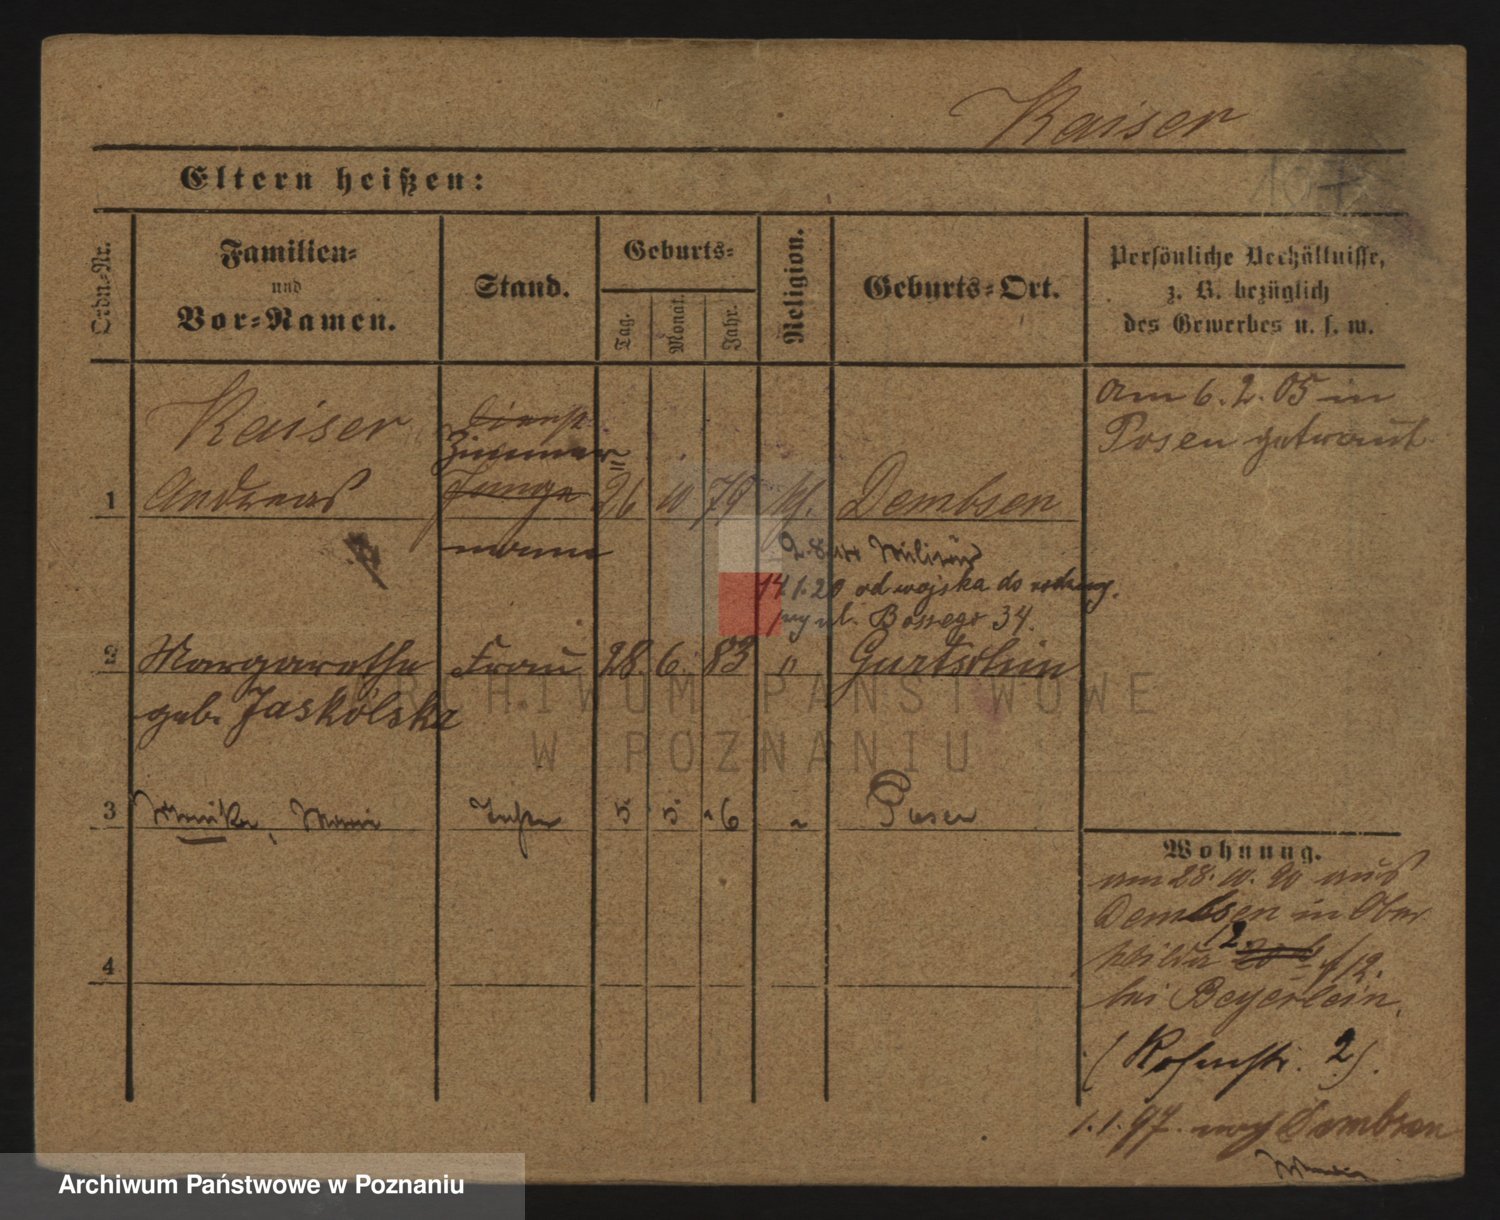 Kaiser
Eltern heißen:
Ordn.-Nr.
Familien-
und
Vor-Namen.
Stand.
Geburts-
Tag.
Monat.
Jahr.
Religion.
Geburts-Ort.
Persönliche Verhältnisse,
z. B. bezüglich
des Gewerbes u. s. w.
Kaiser
Dienst
Zimmer=
am 6. 2. 05 in
Posen getraut
1 Andreas Junge 26 10 79 kf. Dembsen
mann
2.8.14 Militär
14.1.20 od wojska do
przy ul. Bossego 34.
2 Margarethe Frau 28. 6. 83 " Gurtschin
geb. Jaskólska
3 Monika, Maria Tochter 5 5 6 " Posen
4
Wohnung.
am 28. 10. 90 aus
Dembsen in Ober
Wilda 12
bei Beyerlein.
(Rosenstr. 2).
1.1.97. nach Dembsen
ARCHIWUM PAŃSTWOWE
W POZNANIU
Archiwum Państwowe w Poznaniu